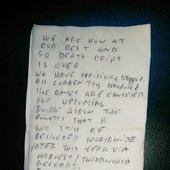 WE ARE NOW AT
OUR BEST AND
SO DEATH GRIPS
IS OVER.
WE HAVE OFFICIALLY STOPPED.
ALL CURRENTLY SCHEDULED
LIVE DATES ARE CANCELED.
OUR UPCOMING
DOUBLE ALBUM THE
POWERS THAT B
WILL STILL BE
DELIVERED WORLDWIDE
LATER THIS YEAR VIA
HARVEST/THIRD WORLDS
RECORDS.